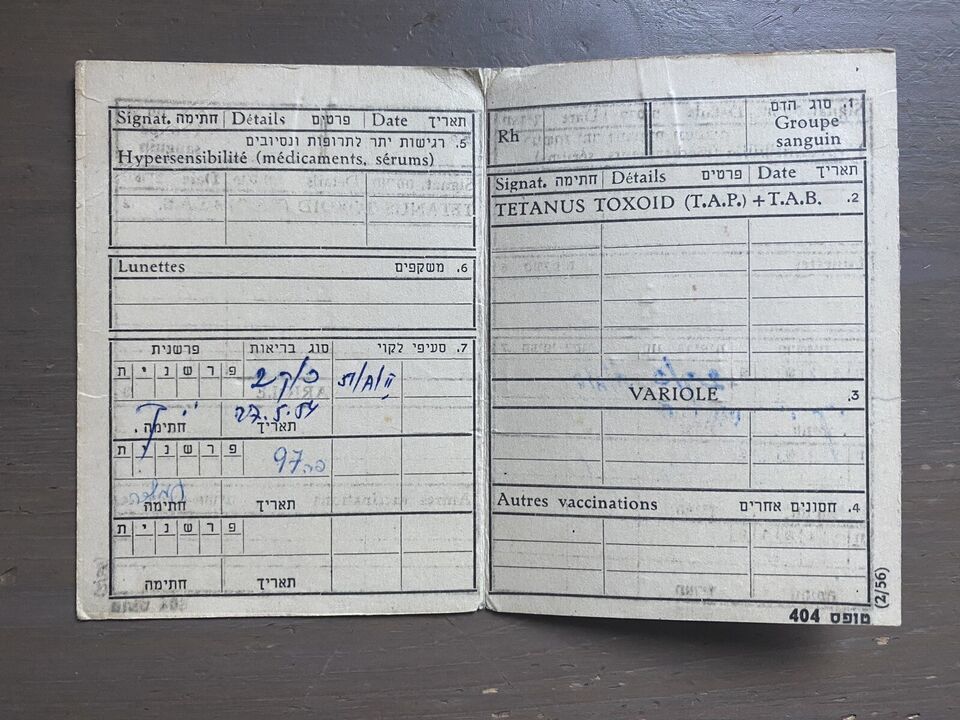 Signat. חתימה Détails פרטים Date תאריך
5. רגישות יתר לתרופות ונסיובים
Hypersensibilité (médicaments, sérums)
Lunettes 6. משקפים
7. סעיפי לקוי סוג בריאות פרשנית
פ ר ש נ י ת
27.5.54
תאריך חתימה.
פ ר ש נ י ת
97
תאריך חתימה
פ ר ש נ י ת
תאריך חתימה
1. סוג הדם
Groupe
sanguin
Rh
Signat. חתימה Détails פרטים Date תאריך
TETANUS TOXOID (T.A.P.) + T.A.B. 2.
VARIOLE 3.
Autres vaccinations 4. חסונים אחרים
טופס 404
(2/56)